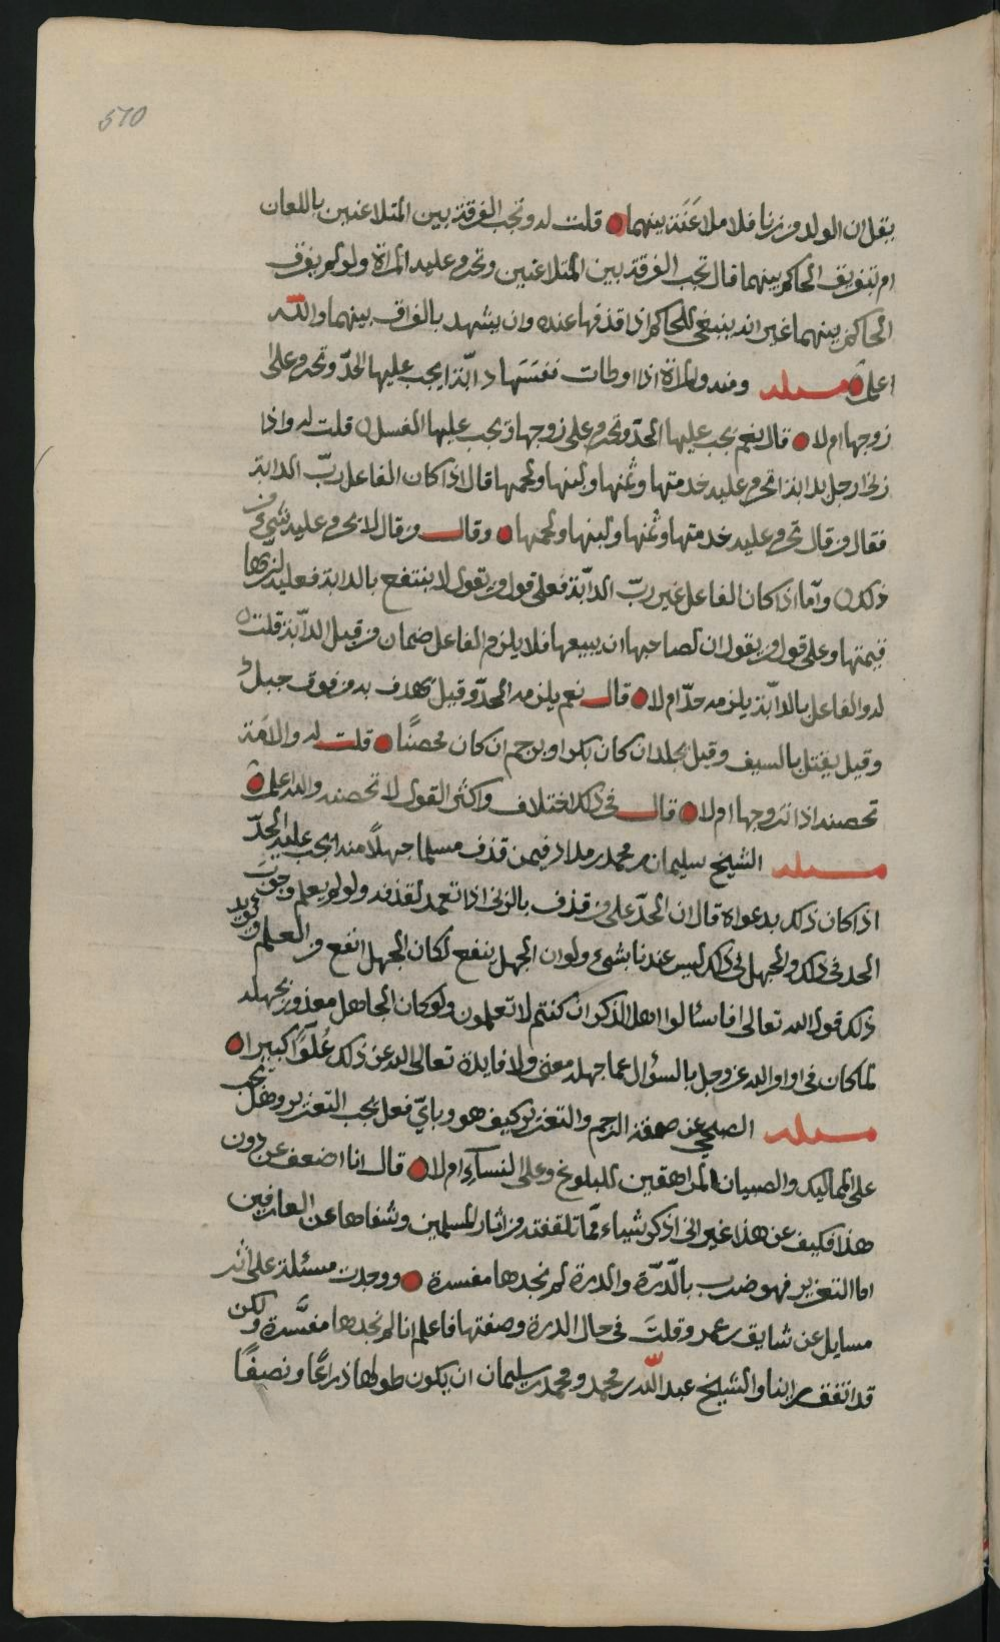 510
يقل ان الولد من زنا فلا ملاعَنَة بينهما قلت له وتجب الفرقة بين المتلاعنين باللعان
ام بتفريق الحاكم بينهما قال تجب الفرقة بين المتلاعنين وتحرم عليه المراة ولو لم يفرق
الحاكم بينهما غير انه ينبغي للحاكم اذا قذفها عنده وان يشهد بالفراق بينهما والله
اعلم مسئله ومنه والمراة اذا اوطات نفسَهَا دابّة ايجب عليها الحدّ وتحرم على
زوجها ام لا قال نعم يجب عليها الحدّ وتحرم على زوجها ويجب عليها الغسل قلت له واذا
زنى رجل بدابة اتحرم عليه خدمتها وثمنها ولبنها ولحمها قال اذا كان الفاعل ربّ الدابة
فقال من قال تحرم عليه خدمتها وثمنها ولبنها ولحمها وقال من قال لا يحرم عليه شيء من
ذلك وامّا اذا كان الفاعل غير ربّ الدابّة فعلى قول من يقول لا ينتفع بالدابة فعليه لربها
قيمتها وعلى قول من يقول ان لصاحبها ان يبيعها فلا يلزم الفاعل ضمان من قبل الدابّة قلت
له والفاعل بالدابّة يلزمه حدّ ام لا قال نعم يلزمه الحدّ وقيل يهدف به من فوق جبل
وقيل يقتل بالسيف وقيل يجلد ان كان بكرا ويرجم ان كان محصنًا قلت له والامَة
تحصنه اذا تزوجها ام لا قال في ذلك اختلاف واكثر القول لا تحصنه والله اعلم
مسئله الشيخ سليمان بن محمد بن مداد فيمن قذف مسلما جهلًا منه ايجب عليه الحدّ
اذا كان ذلك بدعواه قال ان الحدّ على من قذف بالزنى اذا تعمد لقذفه ولو لم يعلم وجوبَ
الحد في ذلك والجهل في ذلك ليس عندنا بشيء ولو ان الجهل ينفع لكان الجهل انفع من العلم ويويد
ذلك قول الله تعالى فاسئالوا اهل الذكر ان كنتم لا تعلمون ولو كان الجاهل معذور بجهله
لما كان في اوامر الله عز وجل بالسؤال عما جهله معنى ولا فايدة تعالى الله عن ذلك عُلوًّا كبيرا
مسئله الصبحي عن صفة الرجم والتعزير كيف هو وبايّ فعل يجب التعزير وهل تجب
على المماليك والصبيان المراهقين للبلوغ وعلى النسآء ام لا قال انا اضعف عن دون
هذا فكيف عن هذا غير اني اذكر شياء ممّا تلقفته من اثار المسلمين وشفاها عن العارفين
اما التعزير فهو ضرب بالدّرّة والدرة لم نجدها مفسرة ووجدت مسئلة على اثر
مسايل عن شايق بن عمر وقلتَ في حال الدرة وصفتها فاعلم انا لم نجدها مفسَّرة ولكن
قد اتفق راينا والشيخ عبد الله بن محمد ومحمد بن سليمان ان يكون طولها ذراعًا ونصفًا